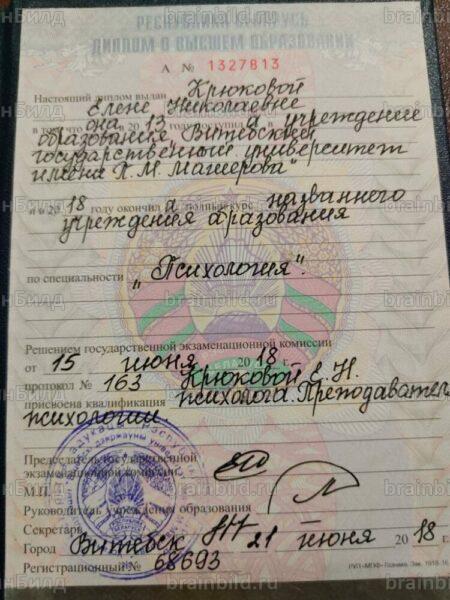 РЕСПУБЛИКА БЕЛАРУСЬ
ДИПЛОМ О ВЫСШЕМ ОБРАЗОВАНИИ
А № 1327813
Настоящий диплом выдан Крюковой
Елене Николаевне
в том, что она в 20 13 году поступил а в учреждение
образования „Витебский
государственный университет
имени П. М. Машерова"
и в 20 18 году окончил а полный курс названного
учреждения образования
по специальности „Психология".
Решением государственной экзаменационной комиссии
от 15 июня 20 18 г.
протокол № 163 Крюковой Е. Н.
присвоена квалификация психолога. Преподаватель
психологии
Председатель государственной
экзаменационной комиссии
М.П.
Руководитель учреждения образования
Секретарь
Город Витебск 21 июня 20 18 г.
Регистрационный № 68693
brainbild.ru
нБилд